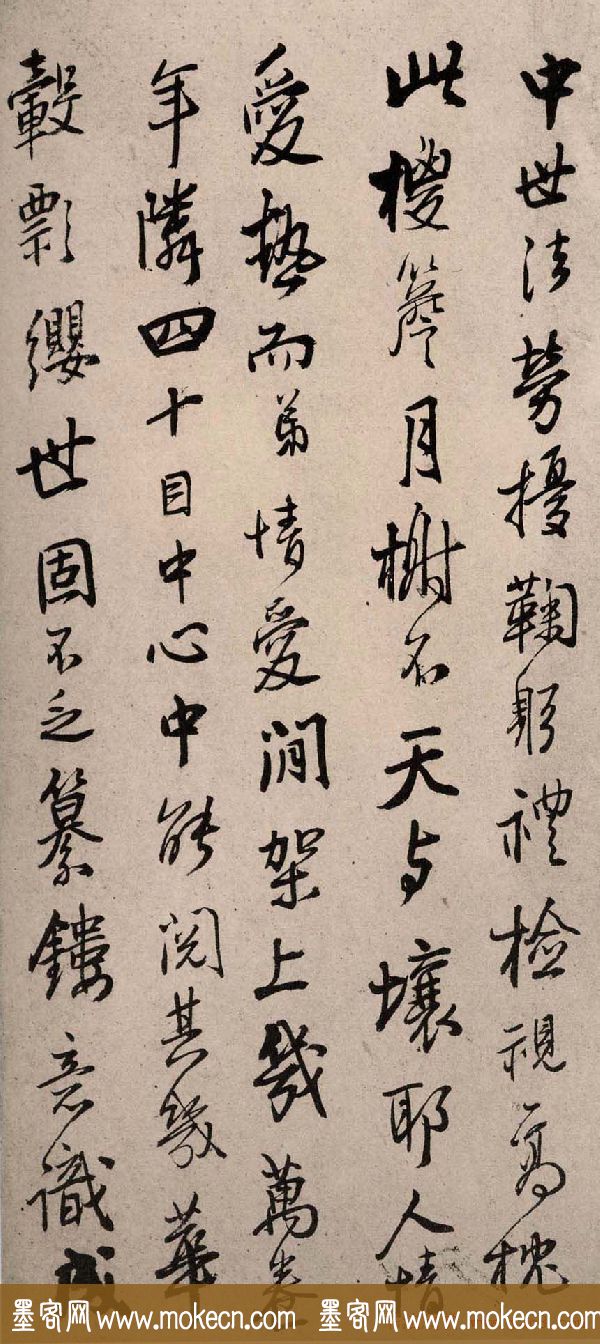 中世法劳擾鞠躬禮檢視高槐
此樓簷月榭不天与壤耶人情
愛熱而弟情愛間架上幾萬卷
年隣四十目中心中能閱其幾華
轂影纓世固不乏纂鏤意識
墨客网www.mokecn.com 墨客网www.mokecn.com